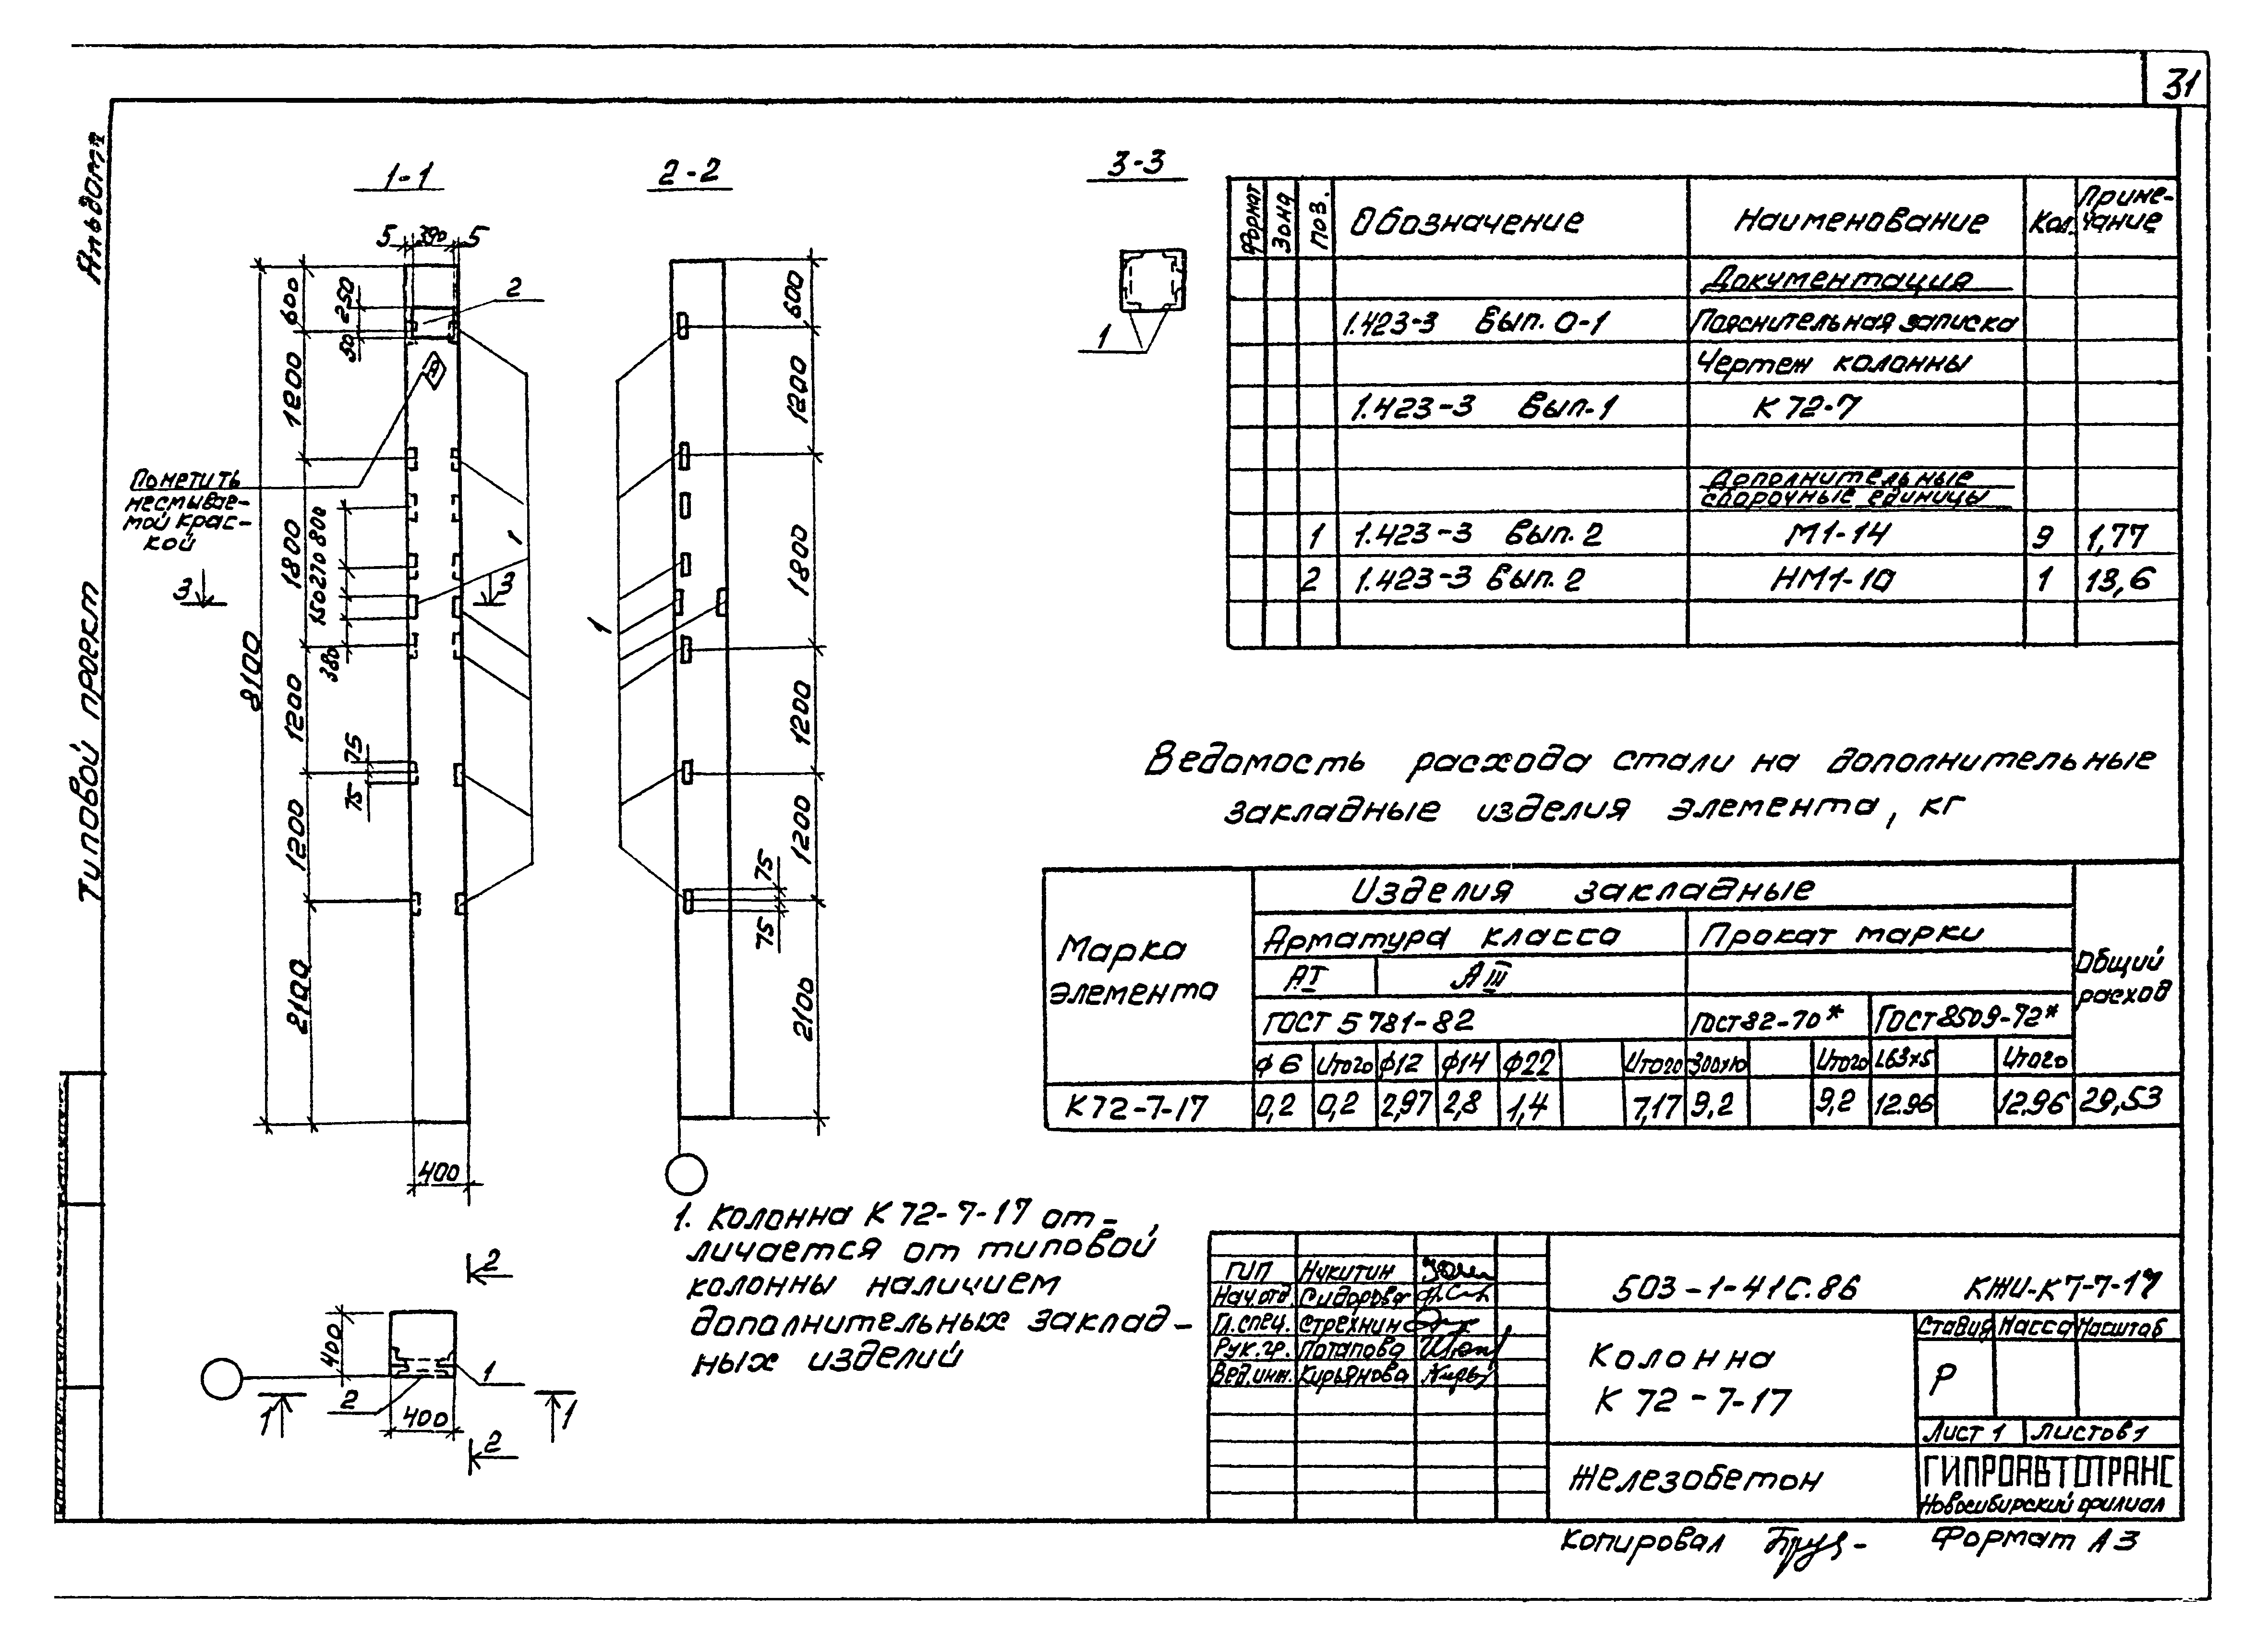 31
Альбом
Типовой проект
1-1
2-2
3-3
5 390 5
600
250
50
1200
2
Пометить
несмывае-
мой крас-
кой
1800
800
270
150
380
3 3
1
8100
1200
75
75
1200
2100
400
600
1200
1800
1
1200
1200
75
75
2100
1
Формат Зона Поз. Обозначение Наименование Кол. Приме-
чание
Документация
1.423-3 Вып. 0-1 Пояснительная записка
Чертеж колонны
1.423-3 Вып-1 К 72-7
Дополнительные
сборочные единицы
1 1.423-3 Вып. 2 М1-14 9 1,77
2 1.423-3 Вып. 2 НМ1-10 1 13,6
Ведомость расхода стали на дополнительные
закладные изделия элемента, кг
Марка
элемента
Изделия закладные
Общий
расход
Арматура класса Прокат марки
АI АIII
ГОСТ 5781-82 Гост 82-70* ГОСТ 8509-72*
ф6 Итого ф12 ф14 ф22 Итого 300х10 Итого L63х5 Итого
К72-7-17 0,2 0,2 2,97 2,8 1,4 7,17 9,2 9,2 12.96 12.96 29,53
1. Колонна К 72-7-17 от-
личается от типовой
колонны наличием
дополнительных заклад-
ных изделий
2
400
1
2
400
1 1
2
ГИП Никитин
Нач.отд. Сидорова
Гл.спец. Стрехнин
Рук.гр. Потапова
Вед.инж. Кирьянова
503-1-41С.86 КЖИ-К7-7-17
Колонна
К 72-7-17
Стадия Масса Масштаб
Р
Лист 1 Листов 1
Железобетон
ГИПРОАВТОТРАНС
Новосибирский филиал
Копировал
Формат А3